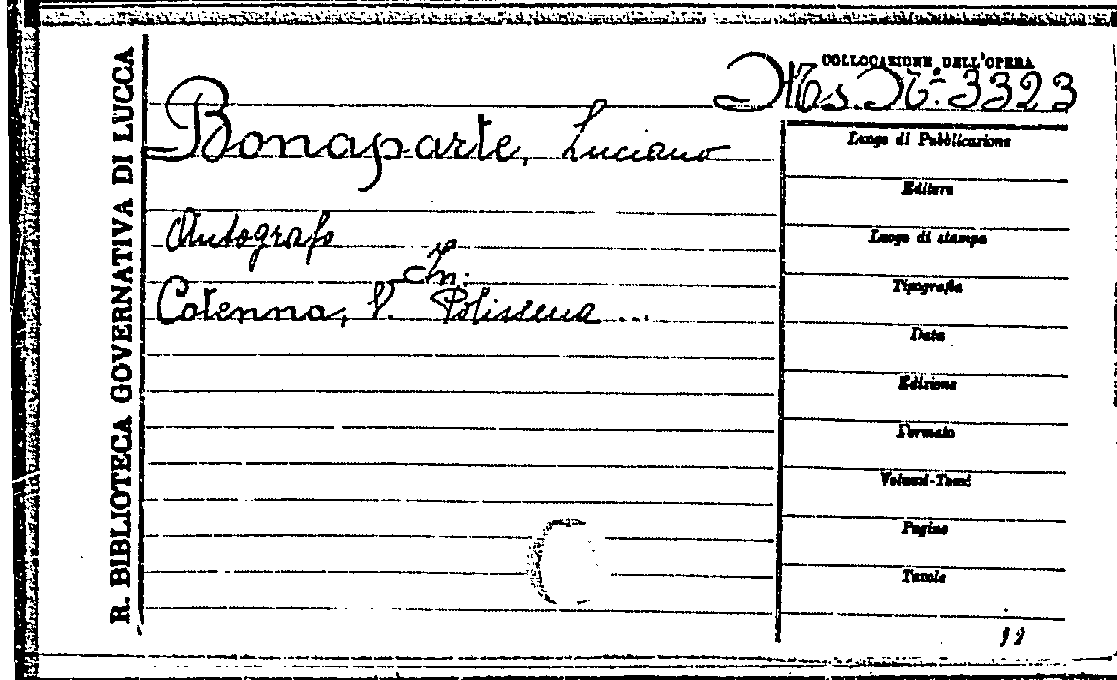 R. BIBLIOTECA GOVERNATIVA DI LUCCA
COLLOCAZIONE DELL'OPERA
Ms. N.º 3323
Bonaparte, Luciano
Autografo
in:
Cotenna, V. Polissena ...
Luogo di Pubblicazione
Editore
Luogo di stampa
Tipografia
Data
Edizione
Formato
Volumi-Tomi
Pagine
Tavole